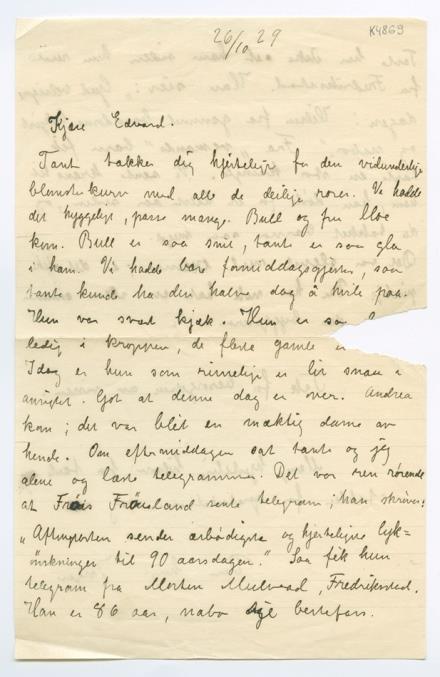 26/10 29
K4869
Kjære Edvard.
Tant takker dig hjerteligst for den vidunderlige
blomsterkurv med alle de deilige roser. Vi hadde
det hyggeligt, passe mange. Bull og fru Moe
kom. Bull er saa snil, tante er saa gla
i ham. Vi hadde bare formiddagsgjester, saa
tante kunde ha den halve dag å hvile paa.
Hun var svært kjæk. Hun er saa
ledig i kroppen, de fleste gamle er
Idag er hun som rimelig er lit snau i
ansigtet. Got at denne dag er over. Andrea
kom; det var blit en mægtig dame av
hende. Om eftermiddagen sat tante og jeg
alene og læste telegrammer. Det var ren rørende
at Frøis Frøisland sente telegram; han skriver:
"Aftenposten sender ærbødigste og hjerteligste lyk=
ønskninger til 90 aarsdagen." Saa fik hun
telegram fra Morten Mulvad, Fredrikstad.
Han er 86 aar, nabo til bestefars.